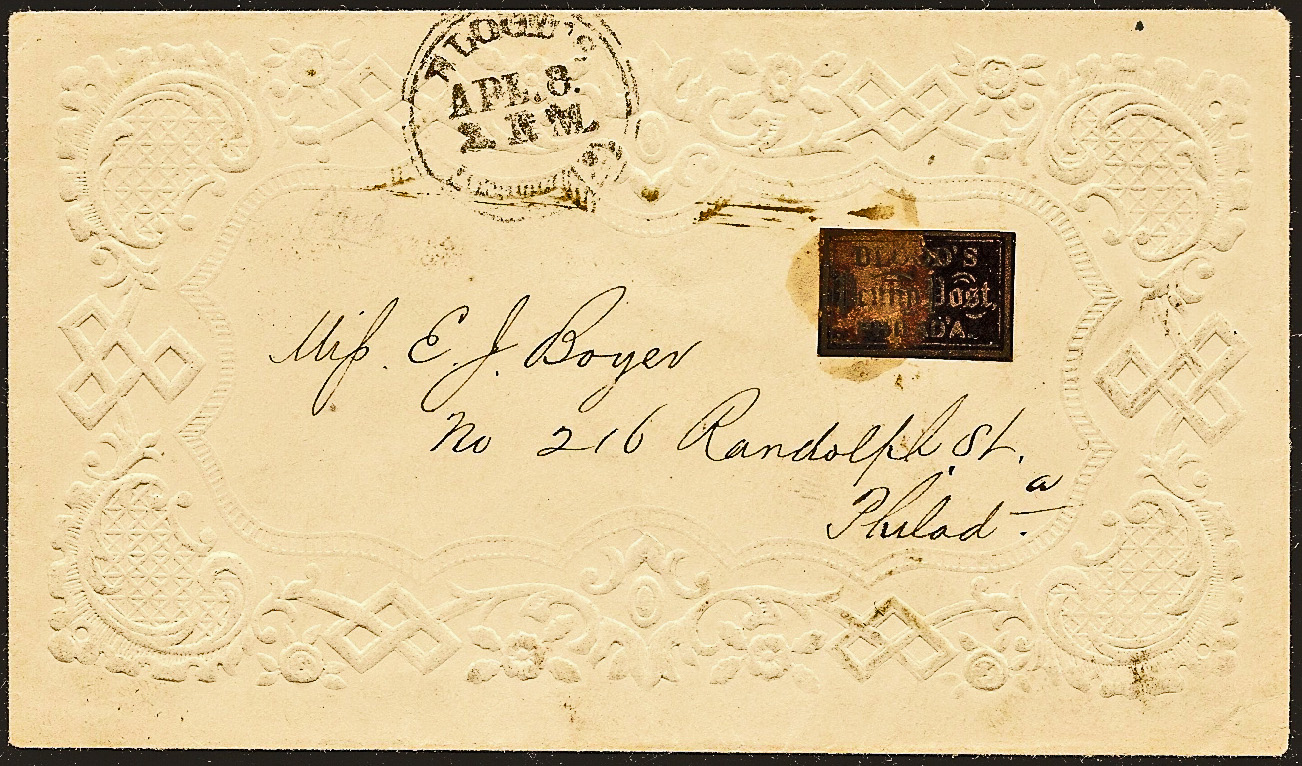 BLOOD'S
APL. 8.
BLOOD'S
Penny Post,
PHILAD'A.
Miss. E. J. Boyer
No 216 Randolph St.
Philad a.